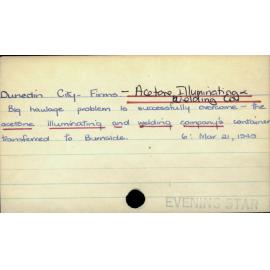 Dunedin City - Firms - Acetone Illuminating &
Welding Co
Big haulage problem is successfully overcome - the
acetone illuminating and welding company's container
transferred to Burnside. 6: Mar 21, 1949
EVENING STAR